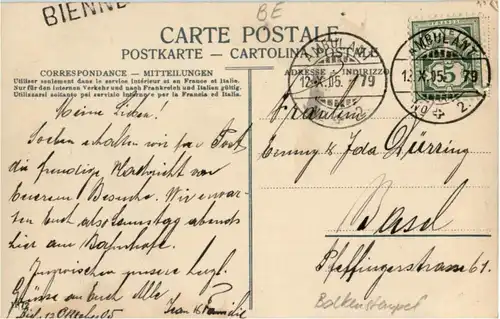 BIENNE
BE
CARTE POSTALE
POSTKARTE - CARTOLINA POSTALE
CORRESPONDANCE - MITTEILUNGEN
ADRESSE - INDIRIZZO
Utiliser seulement dans le service intérieur et en France et Italie.
Nur für den internen Verkehr und nach Frankreich und Italien.
Utilizzarsi soltanto pel servizio interno e per la Francia ed Italia.
AMBULANT
12.X.05. 79
No 2.
AMBULANT
12.X.05. 79
No 2.
5
Meine Lieben!
Soeben erhalten wir per Post
die freudige Nachricht von
Eurerem Besuche. Wir erwar-
ten Euch also Samstag abends
hier am Bahnhofe.
Inzwischen unsere herzl.
Grüsse an Euch Alle
Biel 12 October 05
Familie
Fräulein
Emmy & Ida Dürring
Basel
Pfeffingerstrasse 61.
Balkenstempel